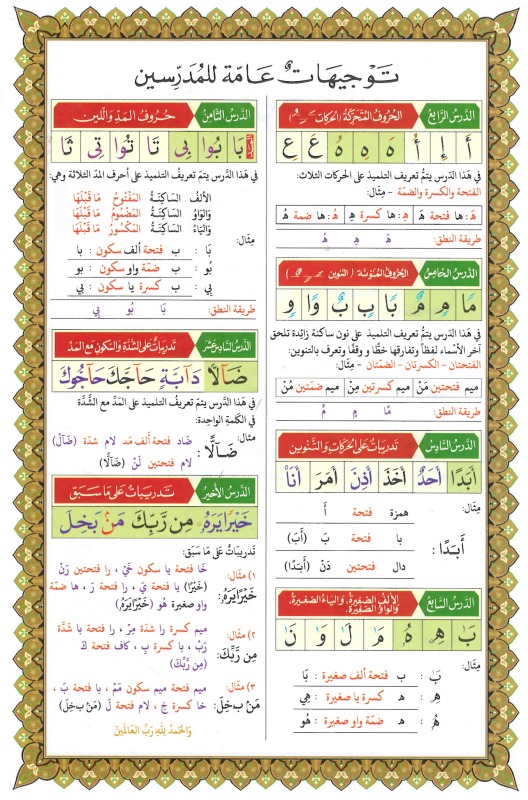 توجيهات عامّة للمُدَرِّسين
الدَّرسُ الرَّابع
الحُروفُ المُتَحَرِّكَةُ (الحركات)
أَ إِ أُ هَ هِ هُ عَ عِ
في هَذا الدّرس يتمُّ تعريف التلميذ على الحركات الثلاث:
الفتحة والكسرة والضمّة – مِثال:
هَ: ها فتحة هَ
هِ: ها كسرة هِ
هُ: ها ضمة هُ
طريقة النطق: هَ هِ هُ
الدَّرسُ الخامِسُ
الحُروفُ المُنَوَّنَة (التنوين)
مًا مٍ مٌ بًا بٍ بٌ وًا وٍ
في هذا الدّرس يتمُّ تعريف التلميذ على نون ساكنة زائدة تلحق
آخر الأسْماء لفظاً وتفارقها خطًّا وَقفًا وتعرف بالتنوين:
الفتحتان – الكسرتان – الضمّتان – مِثال:
ميم فتحتين مَنْ
ميم كسرتين مِنْ
ميم ضمّتين مُنْ
طريقة النطق: مًا مٍ مٌ
الدَّرسُ السَّادِسُ
تدريبات على الحَرَكات والتنوين
أَبَدًا أَحَدٌ أَخَذَ أَذِنَ أَمَرَ أَنَا
مِثال:
أَبَدًا:
همزة فتحة أَ
با فتحة بَ (أَبَ)
دال فتحتين دَنْ (أَبَدًا)
الدَّرسُ السَّابِع
الألِفُ الصَّغيرةُ، وَالياءُ الصَّغيرةُ،
وَالواوُ الصَّغيرَةُ.
مِثال:
بَٰ : ب فتحة ألف صغيرة : بَا
هِۦ : ه كسرة يا صغيرة : هِي
هُۥ : ه ضمّة واو صغيرة : هُو
الدَّرسُ الثَّامِنُ
حُروفُ المَدِّ وَاللّين
بَا بُوا بِي تَا تُوا تِي ثَا
في هذا الدَّرس يتمّ تعريف التلميذ على أحرف المدّ الثلاثة وهي:
الألفُ السّاكِنةُ المَفْتوحُ مَا قَبْلَهَا
وَالواوُ السّاكِنةُ المَضْمُومُ مَا قَبْلَهَا
وَاليَاءُ السّاكِنةُ المَكْسُورُ مَا قَبْلَهَا
مِثال:
بَا : ب فتحة ألف سكون : با
بُو : ب ضمّة واو سكون : بو
بِي : ب كسرة يا سكون : بي
طريقة النطق: بَا بُو بِي
الدَّرسُ السَّادِسَ عَشَرَ
تدريبات على الشَّدَّة وَالسُّكون مَع المَدّ
ضَآلًّا دَآبَّةٍ حَآجَّكَ حَآجُّوكَ
في هذا الدَّرس يتمّ تعريف التلميذ على المَدّ مع الشّدَّة
في الكلمةِ الواحِدة:
مثال:
ضَآلًّا:
ضاد فتحة ألف مَد لام شدّة (ضَآلّ)
لام فتحتين لَنْ (ضَآلًّا)
الدَّرسُ الأخير
تدريبات على ما سَبَق
خَيْرًا يَرَهُۥ مِن رَّبِّكَ مَنۢ بَخِلَ
تدريباتٌ على مَا سَبَق:
١) مثال: خَا فتحة يا سكون خَيْ، را فتحتين رَنْ
خَيْرًا يَرَهُۥ: (خَيْرًا) يا فتحة يَ، را فتحة رَ، ها ضمّة
واو صغيرة هُو (خَيْرًا يَرَهُۥ)
٢) مثال: ميم كسرة را شدّة مِرّ، را فتحة با شدّة
مِن رَّبِّكَ: رَبّ، با كسرة بِ، كاف فتحة كَ
(مِن رَّبِّكَ)
٣) مثال: ميم فتحة ميم سكون مَمْ، با فتحة بَ،
مَنۢ بَخِلَ: خا كسرة خِ، لام فتحة لَ (مَنۢ بَخِلَ)
وَالحَمدُ لِلّهِ رَبِّ العَالَمينَ